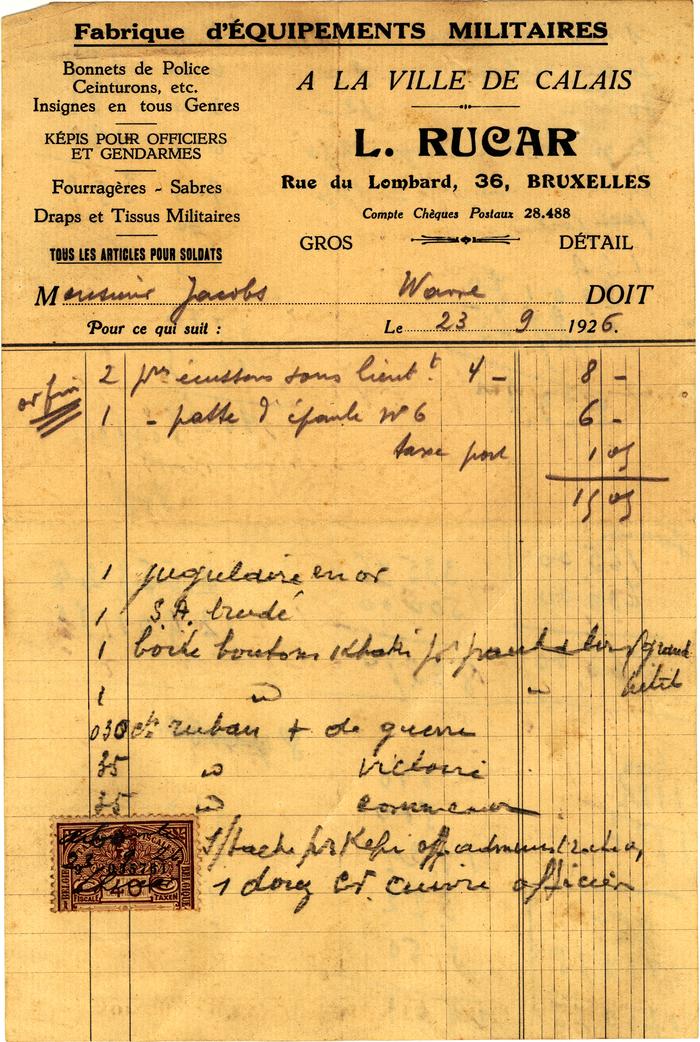 Fabrique d'ÉQUIPEMENTS MILITAIRES
Bonnets de Police
Ceinturons, etc.
Insignes en tous Genres
KÉPIS POUR OFFICIERS
ET GENDARMES
Fourragères - Sabres
Draps et Tissus Militaires
TOUS LES ARTICLES POUR SOLDATS
A LA VILLE DE CALAIS
L. RUCAR
Rue du Lombard, 36, BRUXELLES
Compte Chèques Postaux 28.488
GROS DÉTAIL
Monsieur Jacobs Wavre DOIT
Pour ce qui suit : Le 23 9 1926.
or fin
2 prs écussons sous lieutt 4 - 8 -
1 - patte d'épaule No 6 6 -
taxe port 1 05
15 05
1 jugulaire en or
1 S.A. brodé
1 boîte boutons Khaki pr grand
1 " " petit
030 cts ruban + de guerre
35 " victoire
35 "
pr Kepi off administration
1 douz cuivre officier
BELGIE
BELGIQUE
FISCALE TAXEN